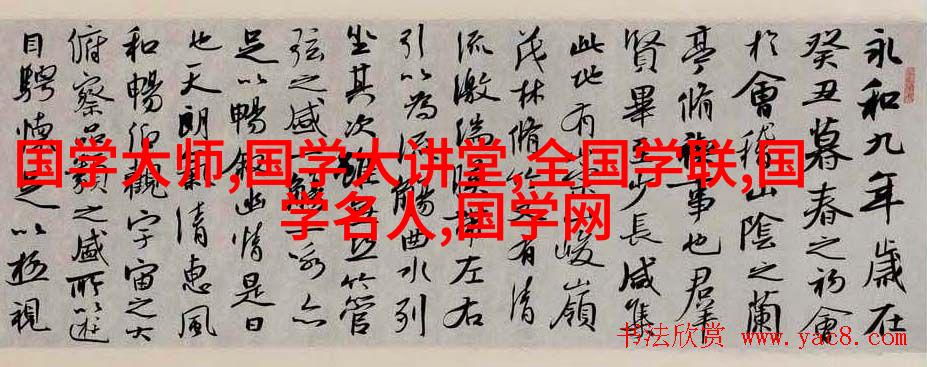 永和九年歲在
癸丑暮春之初會
於會稽山陰之蘭
亭脩禊事也群
賢畢至少長咸集
此地有崇山峻嶺
茂林脩竹又有清
流激湍暎帶左右
引以為流觴曲水列
坐其次雖無絲竹管
弦之盛一觴一詠亦
足以暢敘幽情是日
也天朗氣清惠風
和暢仰觀宇宙之大
俯察品類之盛所以遊
目騁懷足以極視
国学大师,国学大讲堂,全国学联,国
学名人,国学网
书法欣赏 www.yac8.com